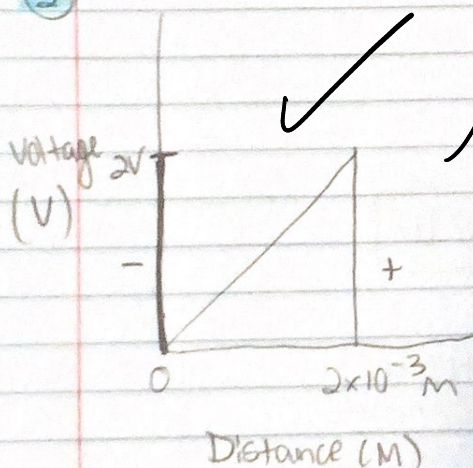 2
Voltage 2V
(V)
- +
0 2x10⁻³ M
Distance (M)